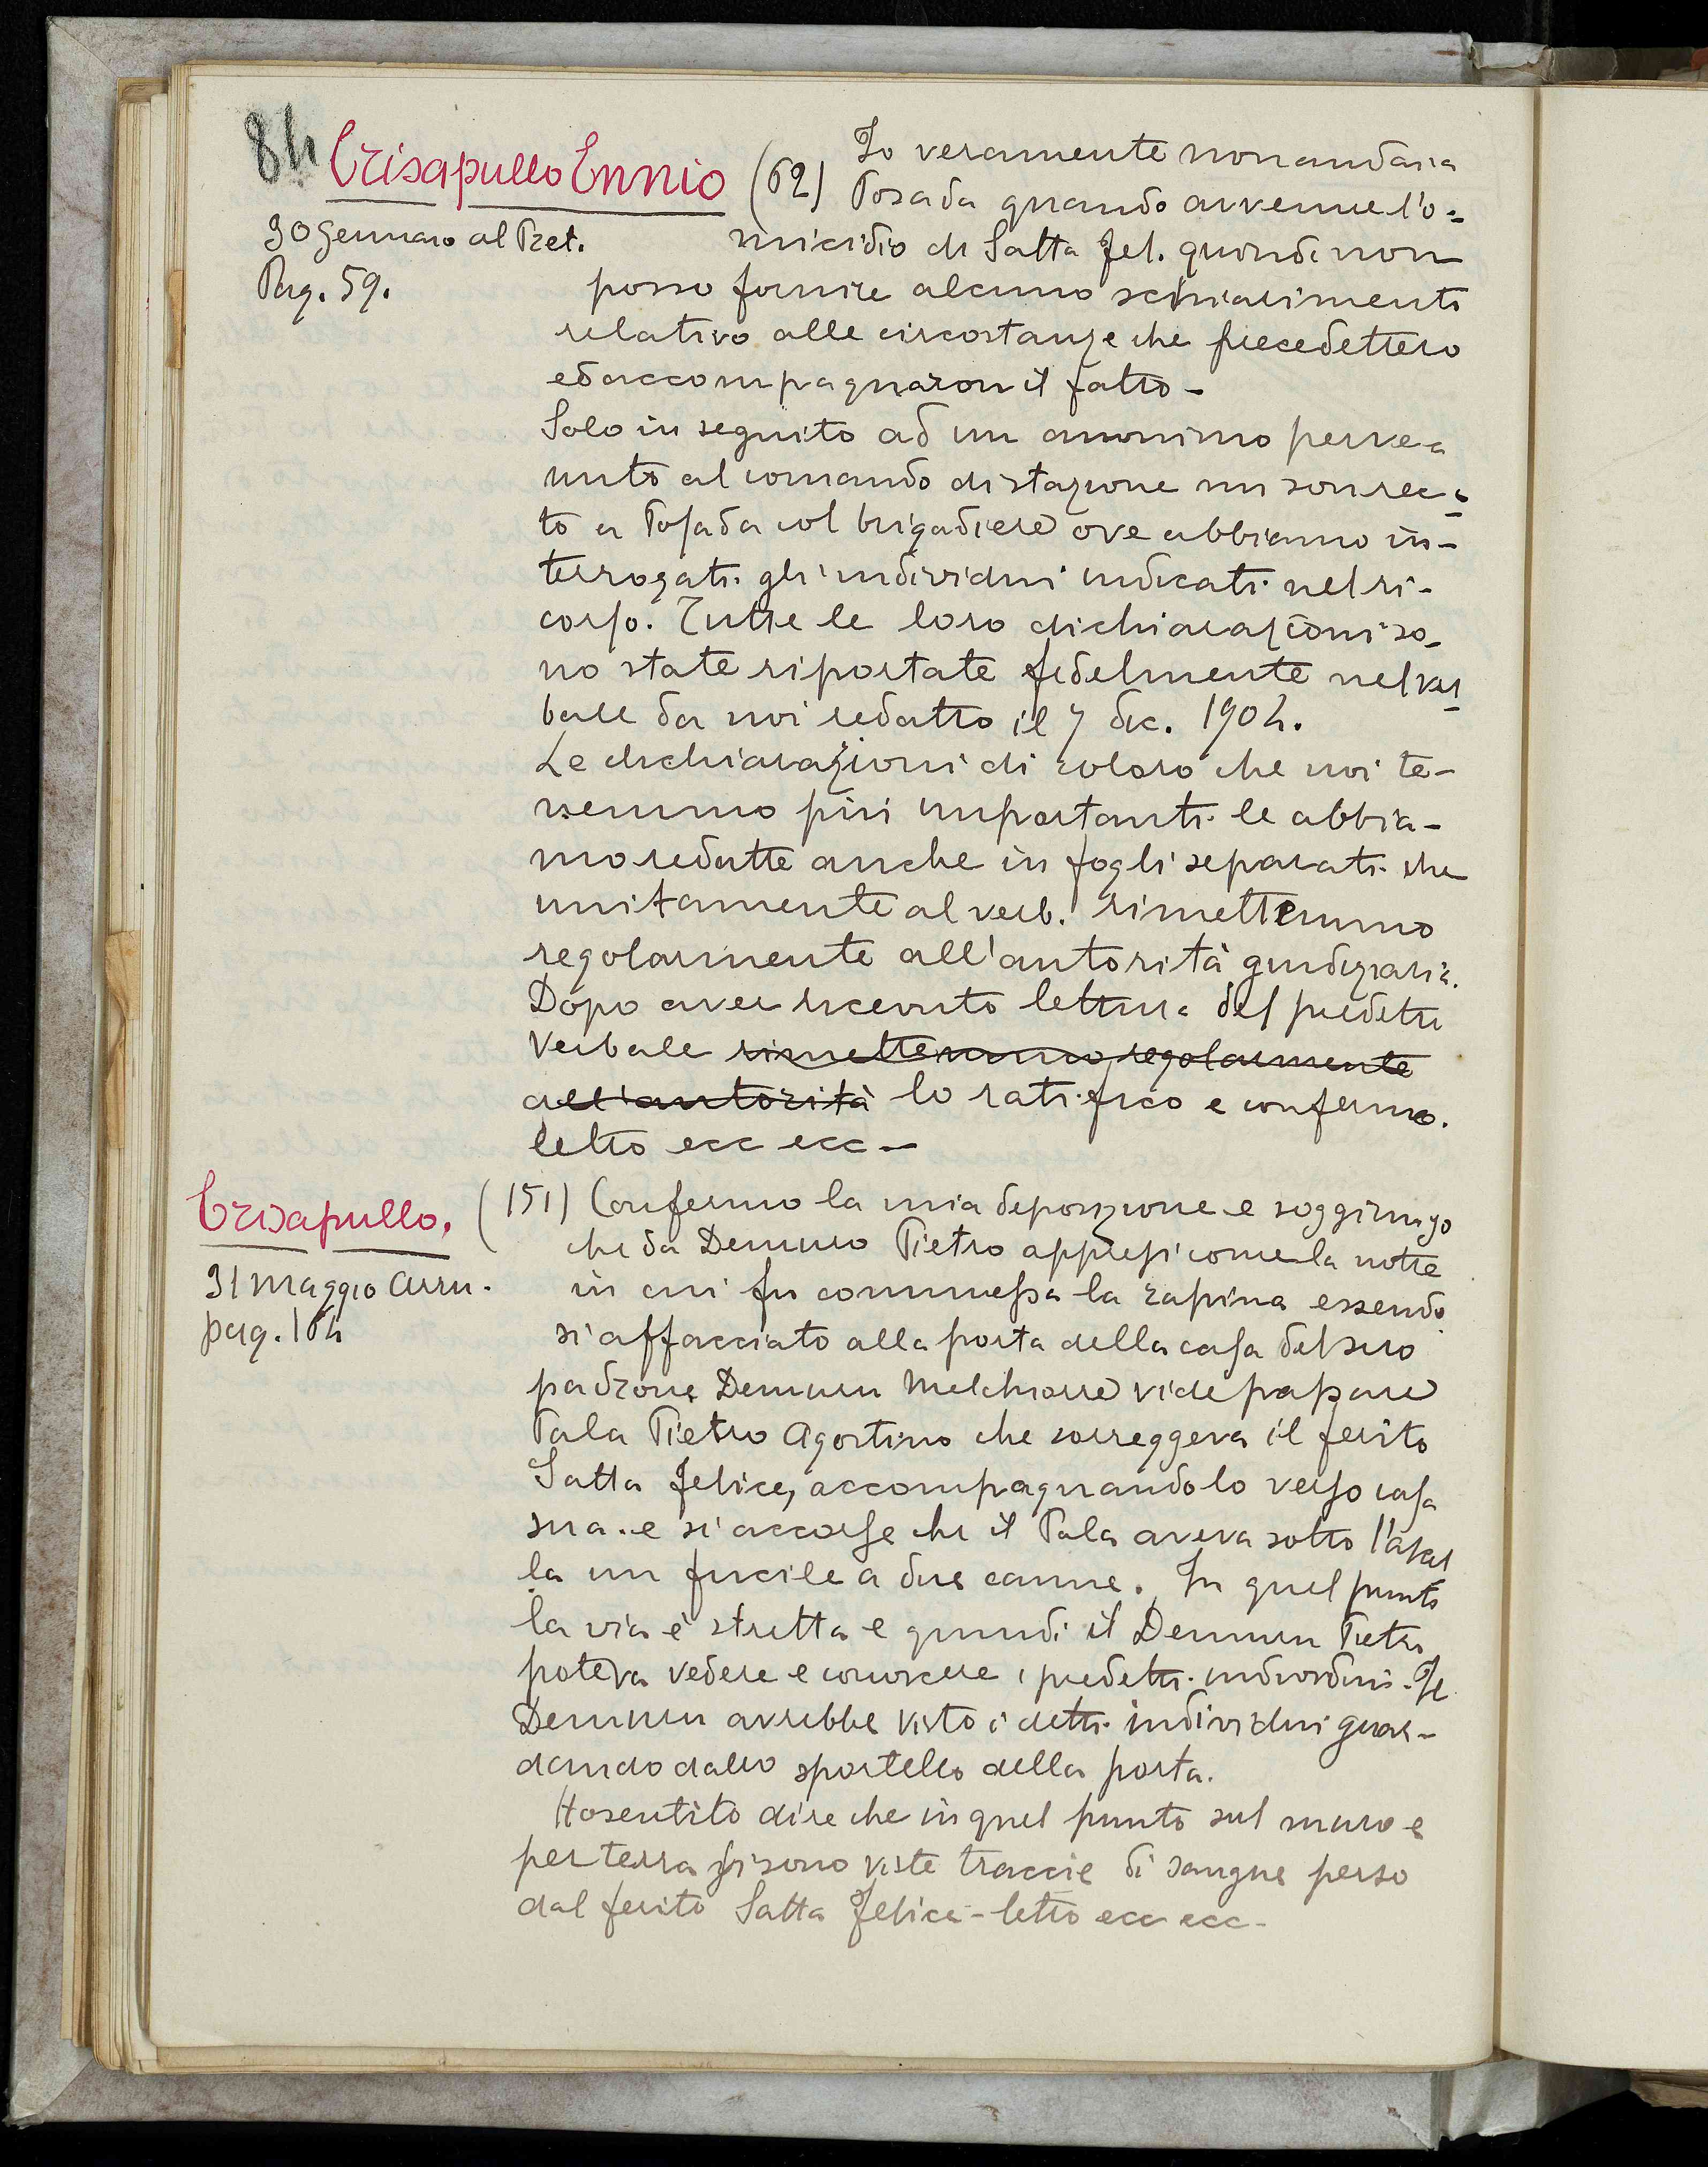 84 Crisapullo Ennio (62) Io veramente non andai a
30 Gennaio al Pret. Posada quando avvenne l'o=
Pag. 59. micidio di Satta Fel. quindi non
posso fornire alcuno schiarimento
relativo alle circostanze che precedettero
ed accompagnaron il fatto -
Solo in seguito ad un anonimo perve=
nuto al comando di stazione mi son reca=
to a Posada col brigadiere ove abbiamo in-
terrogati gli individui indicati nel ri-
corso. Tutte le loro dichiarazioni so-
no state riportate fedelmente nel ver-
bale da noi redatto il 7 dic. 1904.
Le dichiarazioni di coloro che noi te-
nemmo più importanti le abbia-
mo redatte anche in fogli separati che
unitamente al verb. rimettemmo
regolarmente all'autorità giudiziaria.
Dopo aver ricevuto lettura del predetto
verbale rimettemmo regolarmente
all'autorità lo ratifico e confermo.
letto ecc ecc -
Crisapullo. (151) Confermo la mia deposizione e soggiungo
31 Maggio Arru. che da Demuru Pietro appresi come la notte
pag. 164 in cui fu commessa la rapina essendo
si affacciato alla porta della casa del suo
padrone Demuru Melchiorre vide passare
Pala Pietro Agostino che sorreggeva il ferito
Satta Felice, accompagnandolo verso casa
sua. e si accorse che il Pala aveva sotto l'ascel
la un fucile a due canne. In quel punto
la via è stretta e quindi il Demuru Pietro
poteva vedere e conoscere i predetti individui. Il
Demuru avrebbe visto i detti individui guar-
dando dallo sportello della porta.
Ho sentito dire che in quel punto sul muro e
per terra si sono viste traccie di sangue perso
dal ferito Satta Felice - letto ecc ecc -